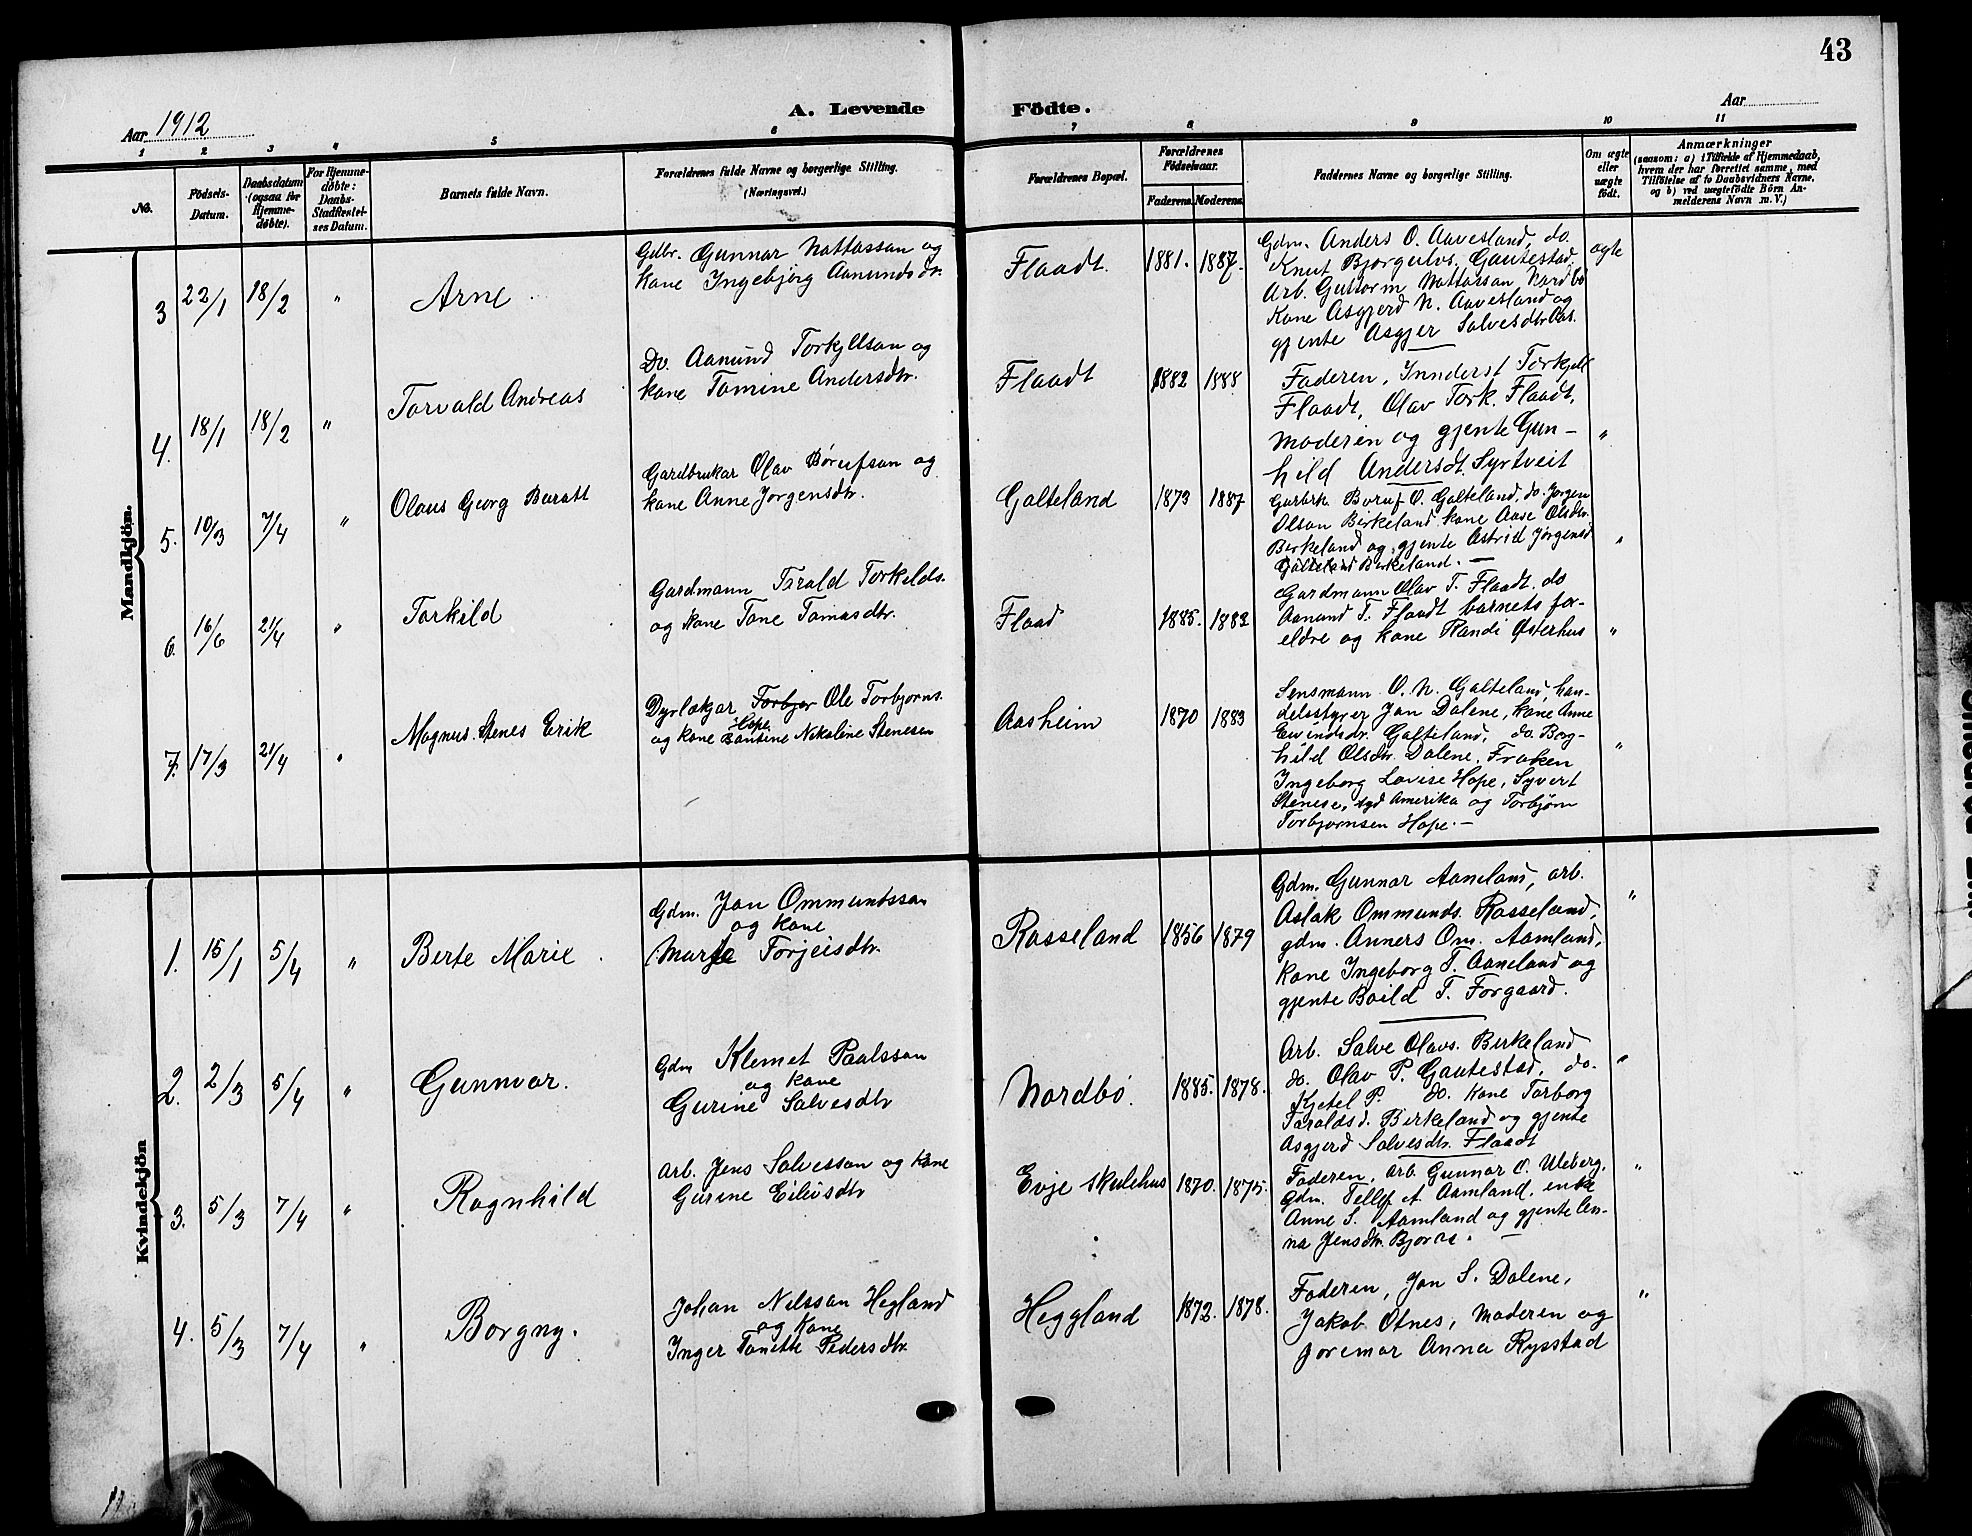 43
A. Levende Födte.
Aar 1912
Aar
1 2 3 4 5 6 7 8 9 10 11
No.
Födsels-
Datum.
Daabsdatum
(ogsaa for
Hjemme-
døbte).
For Hjemme-
døbte:
Daabs-
Stadfestel-
ses Datum.
Barnets fulde Navn.
Forældrenes fulde Navne og borgerlige Stilling.
(Næringsvei.)
Forældrenes Bopæl.
Forældrenes
Fødselsaar.
Faderens. Moderens.
Faddernes Navne og borgerlige Stilling.
Om ægte
eller
uægte
født.
Anmærkninger
(saasom: a) i Tilfælde af Hjemmedaab,
hvem der har forrettet samme, med
Tilföielse af to Daabsvidners Navne,
og b) ved uægtefödte Börn An-
melderens Navn m. V.)
Mandkjön.
3 22/1 18/2 " Arne
Gdbr. Gunnar Nattasson og
kone Ingebjørg Aanundsdr.
Flaadt. 1881. 1887.
Gdm. Anders O. Aavesland, do.
Knut Bjorgulvs. Gautestad,
Arb. Guttorm Nattasson Nordbø
Kone Asgjerd N. Aavesland og
gjente Asgjer Salvesdtr. Aas.
ægte
4. 18/1 18/2 " Torvald Andreas
Do. Aanund Torkjellson og
kone Tomine Andersdtr.
Flaadt 1882 1888
Faderen, Innderst Torkjell
Flaadt, Olav Tork. Flaadt,
moderen og gjente Gun-
hild Andersdt. Syrtveit
"
5. 10/3 7/4 " Olaus Georg Buratt
Gardbrukar Olav Børufson og
kone Anne Jorgensdtr.
Galteland 1873 1887
Garbrk. Boruf O. Galteland, do. Jorgen
Olson Birkeland kone Aase Olsdtr.
Birkeland og gjente Astrid Jørgensd
Galteland Birkeland. —
"
6. 16/6 21/4 " Torkild
Gardmann Tarald Torkilds.
og kone Tone Tomasdtr.
Flaad 1885. 1882
Gardmann Olav T. Flaadt. do
Aanund T. Flaadt barnets for-
eldre og kone Randi Østerhus
"
7. 17/3 21/4 " Magnus Stenes Erik
Dyrlækjar Torbjor Ole Torbjorns.
Hope
og kone Bantine Nikoline Stenesen
Aasheim 1870 1883
Lensmann O. N. Galteland, han-
delsstyrer Jon Dalene, kone Anne
Eivindsdr. Galteland, do. Borg-
hild Olsdtr. Dalene, Frøken
Ingeborg Lovise Hope, Syvert
Stenese, syd Amerika og Torbjørn
Torbjornsen Hope. —
"
Kvindekjön
1. 15/1 5/4 " Berte Marie
Gdm. Jon Ommundsson
og kone
Marte Torjeisdtr.
Rosseland 1856 1879
Gdm. Gunnar Aaneland, arb.
Aslak Ommunds. Rosseland,
gdm. Anners Om. Aamland,
kone Ingeborg T. Aaneland og
gjente Boild T. Forgaard.
"
2. 2/3 5/4 " Gunnvor.
Gdm Klemet Paulsson
og kone
Gurine Salvesdtr
Nordbø. 1885. 1878.
Arb. Salve Olavs. Birkeland
do. Olav P. Gautestad, do.
Kjetel P. do. kone Torborg
Taraldsd. Birkeland og gjente
Asgjerd Salvesdtr. Flaadt
"
3. 5/3 7/4 " Ragnhild
Arb. Jens Salvesson og kone
Gurine Eilevsdtr
Evje skulehus 1870. 1875.
Faderen, arb. Gunnar O. Uleberg,
Gdm. Tellef A Aamland, enke
Anne S. Aamland og gjente An-
na Jensdtr. Bjoraa. —
"
4. 5/3 7/4 " Borgny.
Johan Nilsson Hegland
og kone
Inger Tonette Pedersdtr.
Heggland 1872. 1878.
Faderen, Jon S. Dalene,
Jakob Otnes, Moderen og
joremor Anna Rysstad
"